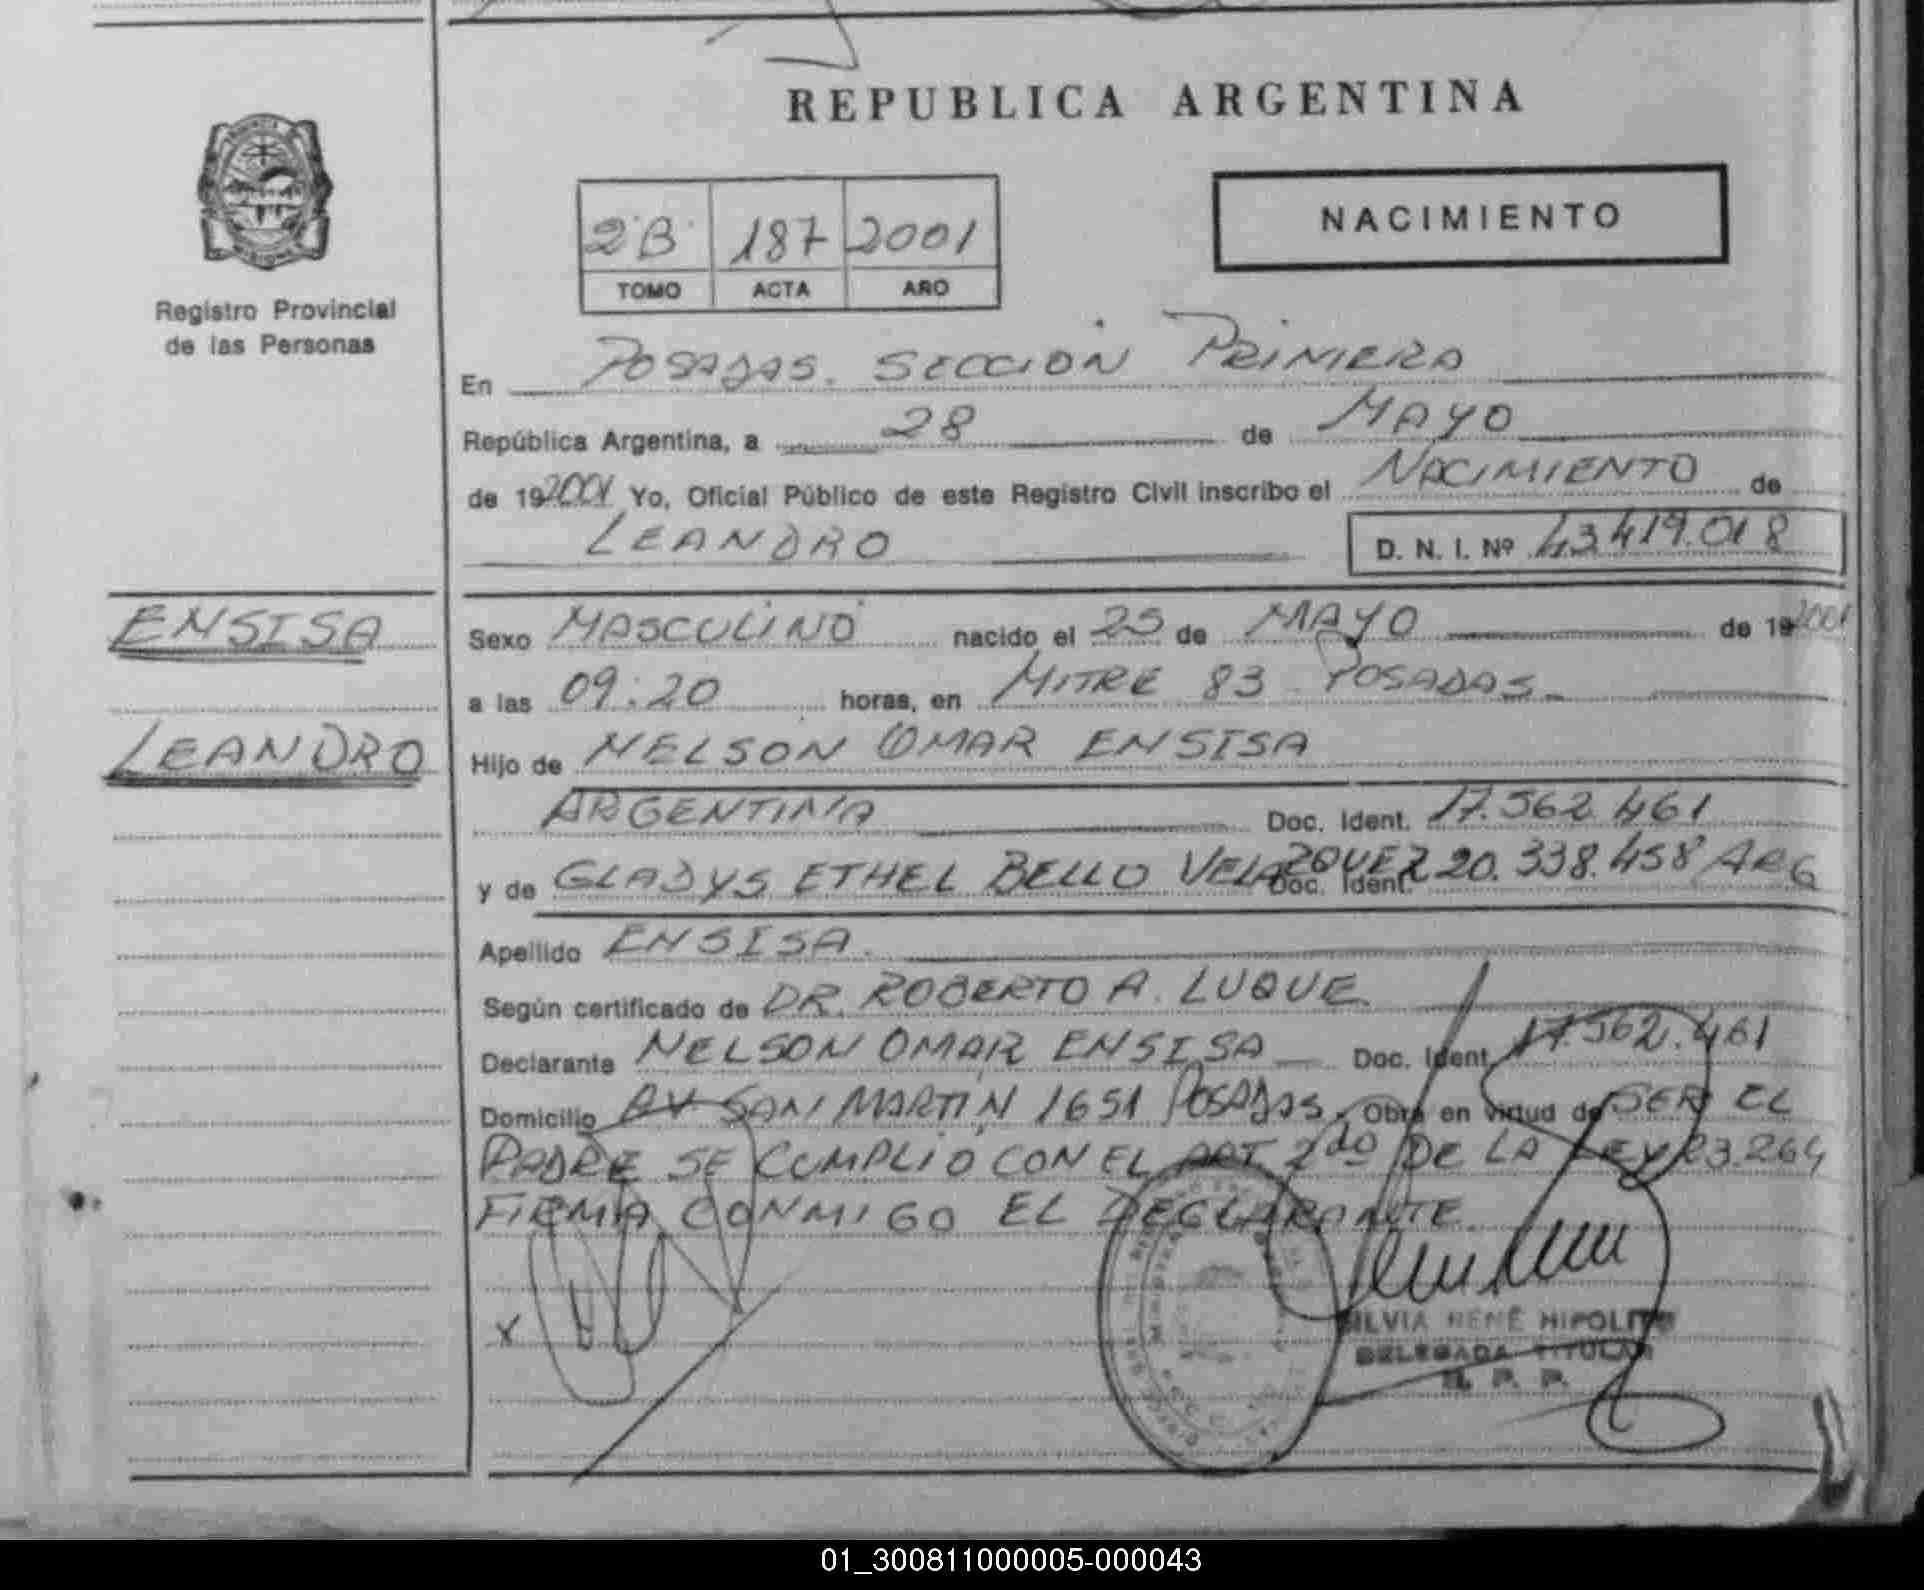 REPUBLICA ARGENTINA
2B 187 2001
TOMO ACTA AÑO
NACIMIENTO
Registro Provincial
de las Personas
En POSADAS. SECCION PRIMERA
República Argentina, a 28 de MAYO
de 192001 Yo, Oficial Público de este Registro Civil inscribo el NACIMIENTO de
LEANDRO D. N. I. Nº 43.419.018
ENSISA
LEANDRO
Sexo MASCULINO nacido el 25 de MAYO de 192001
a las 09:20 horas, en MITRE 83 POSADAS
Hijo de NELSON OMAR ENSISA
ARGENTINA Doc. Ident. 17.562.461
y de GLADYS ETHEL BELLO VELAZQUEZ Doc. Ident. 20.338.458 ARG
Apellido ENSISA.
Según certificado de DR. ROBERTO A. LUQUE
Declarante NELSON OMAR ENSISA Doc. Ident. 17.562.461
Domicilio AV SAN MARTIN 1651 POSADAS. Obra en virtud de SER EL
PADRE SE CUMPLIO CON EL ART 2do DE LA LEY 23.264
FIRMA CONMIGO EL DECLARANTE
X
SILVIA RENÉ HIPOLITO
DELEGADA TITULAR
R. P. P.
01_300811000005-000043